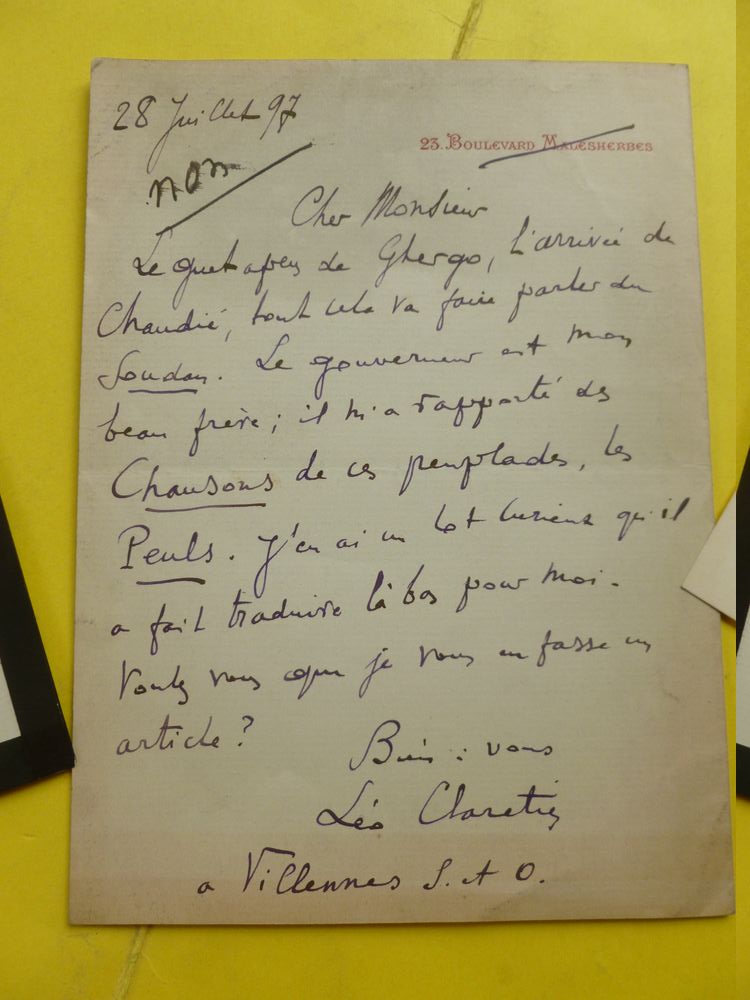 28 Juillet 97
23. BOULEVARD MALESHERBES
non
Cher Monsieur
Le guet apens de Ghergo, l'arrivée de
Chaudié, tout cela va faire parler du
Soudan. Le gouverneur est mon
beau frère ; il m'a rapporté des
Chansons de ces peuplades, les
Peuls. J'en ai un lot curieux qu'il
a fait traduire là bas pour moi.
Voulez vous que je vous en fasse un
article ?
Bien à vous
Léo Claretie
a Villennes S. et O.